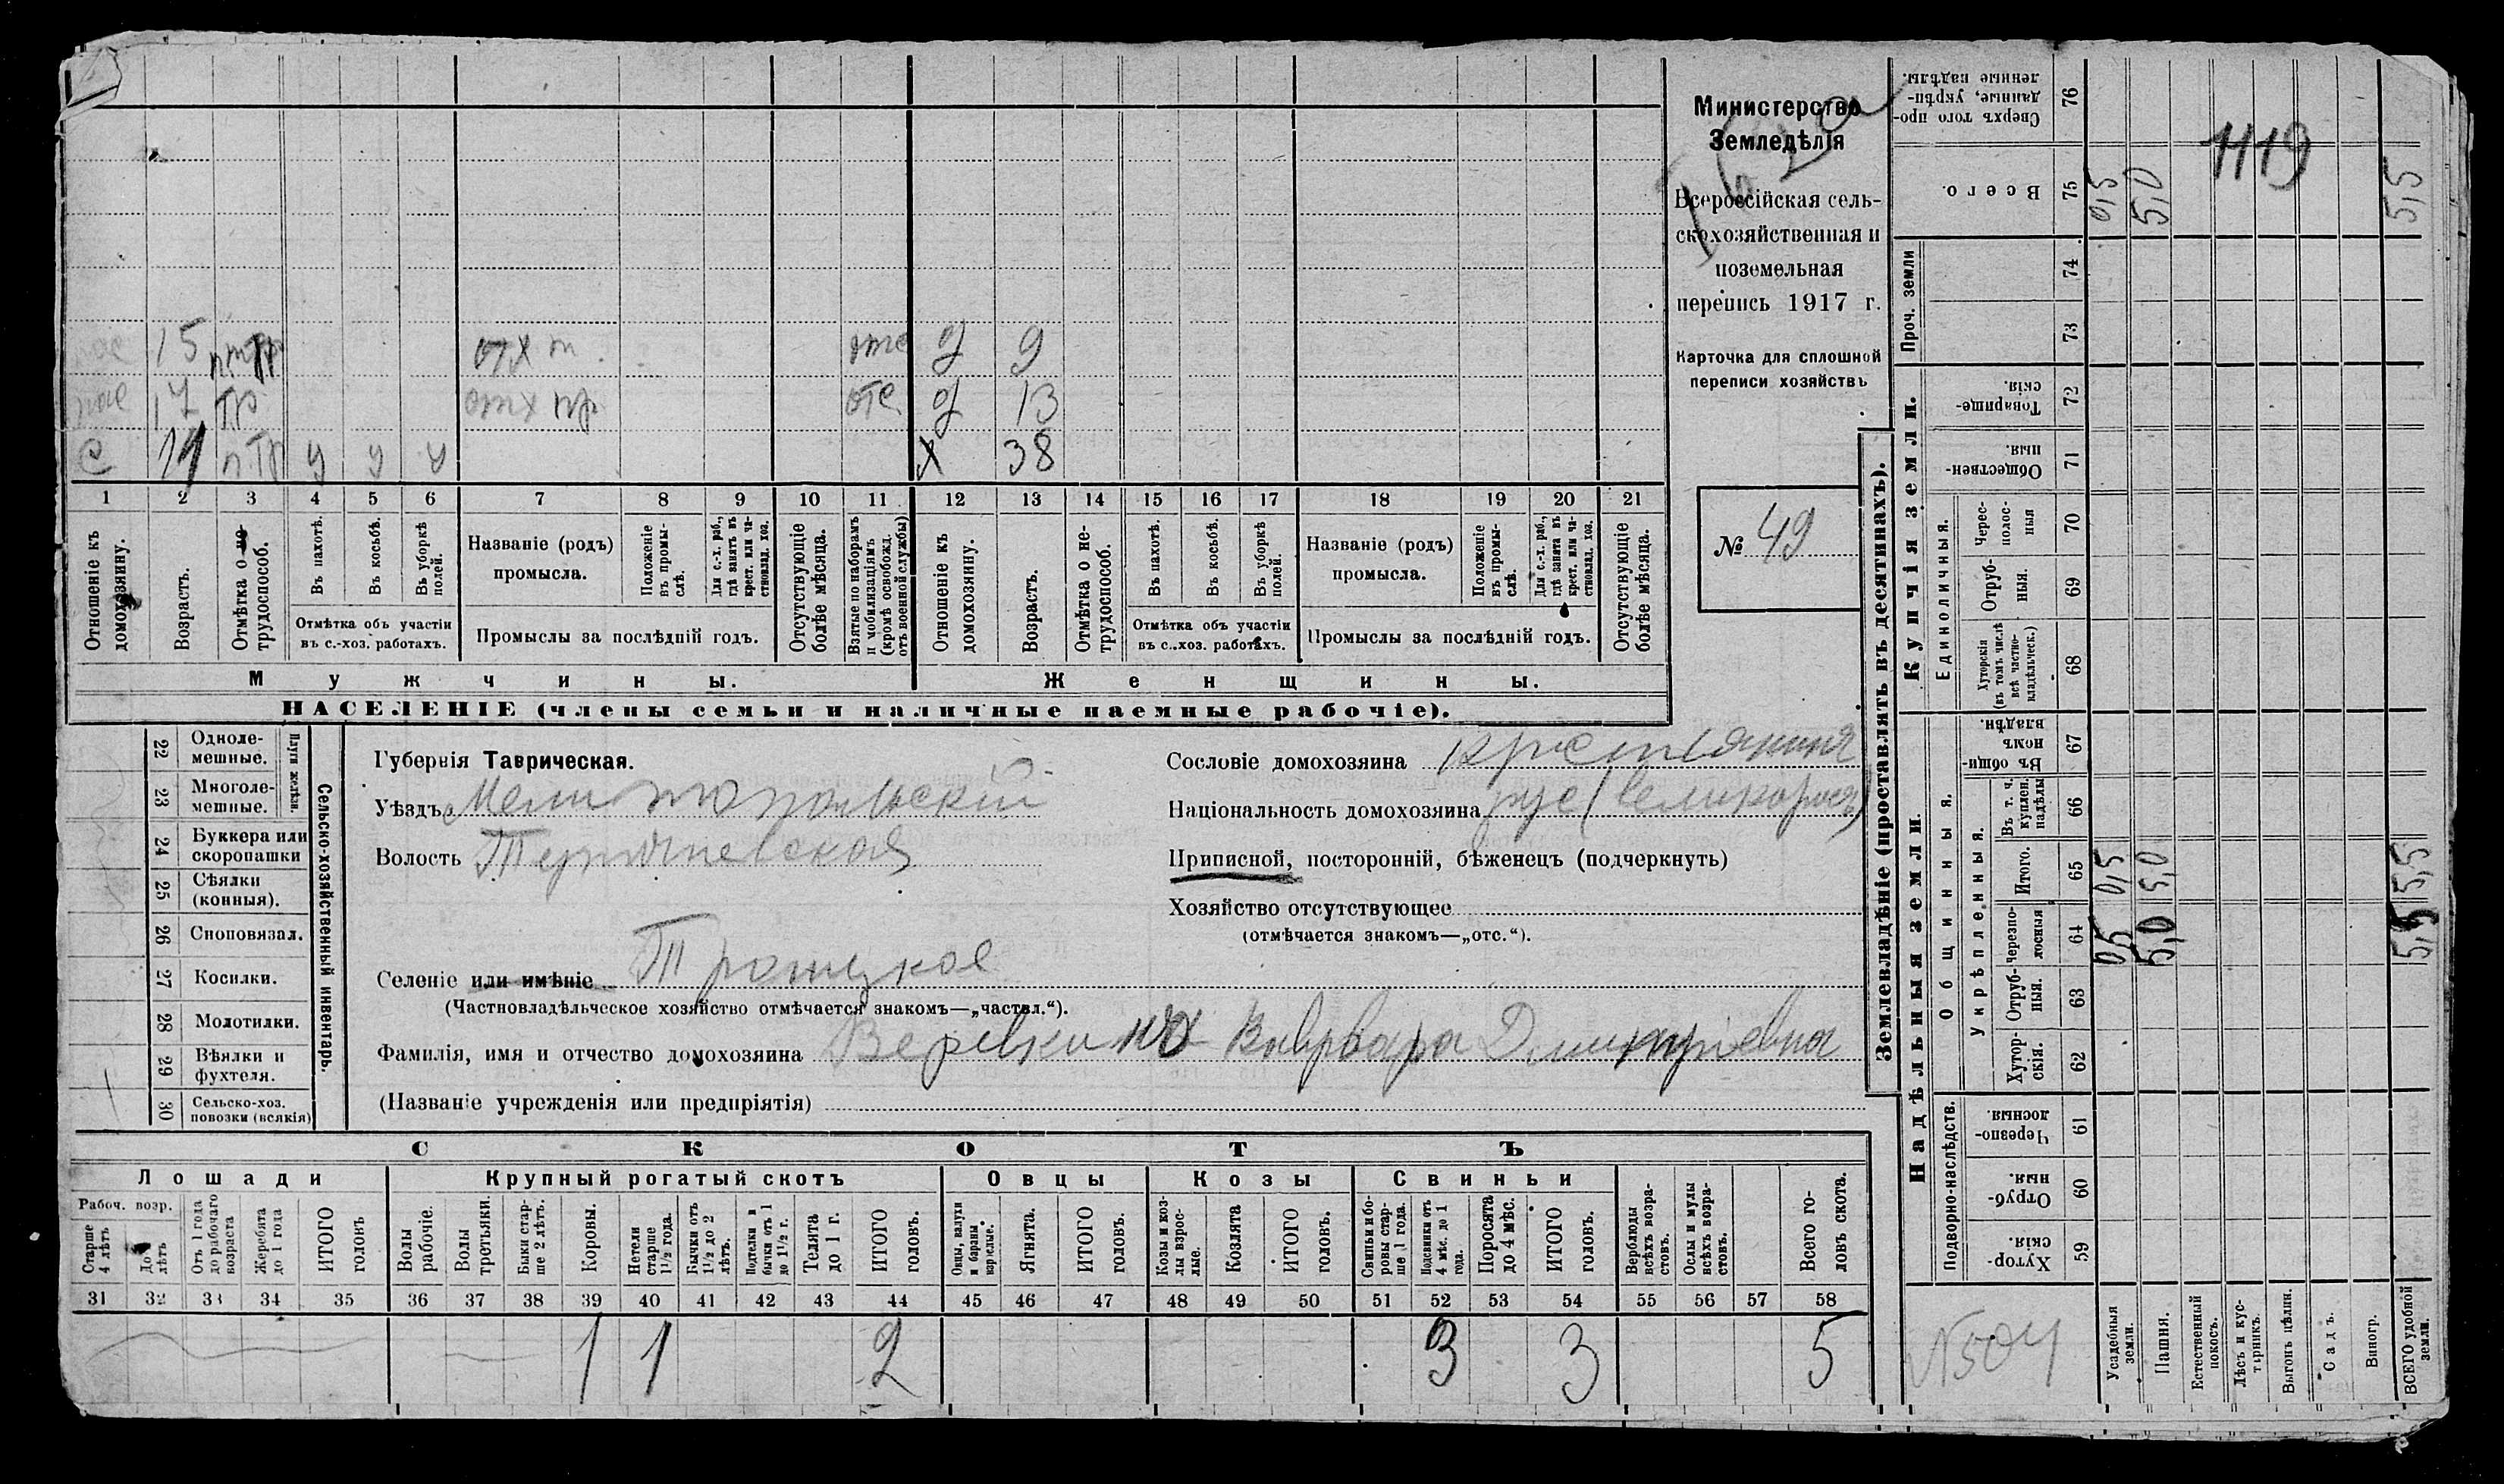 Министерство
Земледѣлія
Всероссійская сель-
скохозяйственная и
поземельная
перепись 1917 г.
Карточка для сплошной
переписи хозяйствъ
№ 49
15 отх 9
17 тр отх пр отс 13
с 11 птр у у у х 38
1 2 3 4 5 6 7 8 9 10 11 12 13 14 15 16 17 18 19 20 21
Отношеніе къ домохозяину.
Возрастъ.
Отмѣтка о не-трудоспособ.
Въ пахотѣ.
Въ косьбѣ.
Въ уборкѣ полей.
Отмѣтка объ участіи
въ с.-хоз. работахъ.
Названіе (родъ)
промысла.
Положеніе въ промы-слѣ.
Для с.-х. раб., гдѣ занятъ въ крест. или ча-стновлад. хоз.
Промыслы за послѣдній годъ.
Отсутствующіе болѣе мѣсяца.
Взятые по наборамъ и мобилизаціямъ (кромѣ освобожд. отъ военной службы)
Отношеніе къ домохозяину.
Возрастъ.
Отмѣтка о не-трудоспособ.
Въ пахотѣ.
Въ косьбѣ.
Въ уборкѣ полей.
Отмѣтка объ участіи
въ с.-хоз. работахъ.
Названіе (родъ)
промысла.
Положеніе въ промы-слѣ.
Для с.-х. раб., гдѣ занята въ крест. или ча-стновлад. хоз.
Промыслы за послѣдній годъ.
Отсутствующіе болѣе мѣсяца.
Мужчины. Женщины.
НАСЕЛЕНІЕ (члены семьи и наличные наемные рабочіе).
Сельско-хозяйственный инвентарь.
Плуги желѣзн.
22 Одноле-мешные.
23 Многоле-мешные.
24 Буккера или скоропашки
25 Сѣялки (конныя).
26 Сноповязал.
27 Косилки.
28 Молотилки.
29 Вѣялки и фухтеля.
30 Сельско-хоз. повозки (всякія)
Губернія Таврическая.
Уѣздъ Мелитопольскій
Волость
Селеніе или имѣніе Троицкое
(Частновладѣльческое хозяйство отмѣчается знакомъ—„частвл.“).
Сословіе домохозяина крестьянина
Національность домохозяина рус (великорос)
Приписной, посторонній, бѣженецъ (подчеркнуть)
Хозяйство отсутствующее
(отмѣчается знакомъ—„отс.“).
Фамилія, имя и отчество домохозяина Веревкина Варвара Дмитріевна
(Названіе учрежденія или предпріятія)
СКОТЪ
Лошади Крупный рогатый скотъ Овцы Козы Свиньи
Рабоч. возр.
Старше 4 лѣтъ
До 4 лѣтъ
Отъ 1 года до рабочаго возраста
Жеребята до 1 года
ИТОГО головъ
Волы рабочіе.
Волы третьяки.
Быки стар-ше 2 лѣтъ.
Коровы.
Нетели старше 1½ года.
Бычки отъ 1½ до 2 лѣтъ.
Подтелки и бычки отъ 1 до 1½ г.
Телята до 1 г.
ИТОГО головъ.
Овцы, валухи и бараны взрослые.
Ягнята.
ИТОГО головъ.
Козы и коз-лы взрос-лые.
Козлята
ИТОГО головъ.
Свиньи и бо-ровы стар-ше 1 года.
Подсвинки отъ 4 мѣс. до 1 года.
Поросята до 4 мѣс.
ИТОГО головъ.
Верблюды всѣхъ возра-стовъ.
Ослы и мулы всѣхъ возра-стовъ.
Всего го-ловъ скота.
31 32 33 34 35 36 37 38 39 40 41 42 43 44 45 46 47 48 49 50 51 52 53 54 55 56 57 58
1 1 2 3 3 5
Землевладѣніе (проставлять въ десятинахъ).
Надѣльныя земли.
Купчія земли.
Проч. земли
Общинныя.
Укрѣпленныя.
Подворно-наслѣдств.
Единоличныя.
Сверхъ того про-данные, укрѣп-ленные надѣлы. 76
Всего. 75
74
73
Товарище-скія. 72
Обществен-ныя. 71
Черес-полос-ныя 70
Отруб-ныя. 69
Хуторскія (въ томъ числѣ всѣ частно-владѣльческ.) 68
Въ общин-номъ владѣн. 67
Въ т. ч. куплен. надѣлы 66
Итого. 65
Черезпо-лосныя 64
Отруб-ныя. 63
Хутор-скія. 62
Черезпо-лосныя. 61
Отруб-ныя. 60
Хутор-скія. 59
Усадебныя земли. 0,5 0,5 0,5
Пашня. 5,0 5,0 5,0
Естественный покосъ.
Лѣсъ и кус-тарникъ.
Выгонъ цѣлин.
Садъ.
Виногр.
ВСЕГО удобной земли. 5,5 5,5 5,5
1119
N504